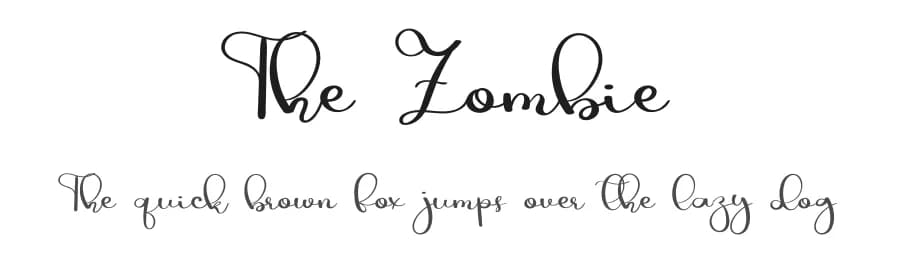 The Zombie
The quick brown fox jumps over the lazy dog